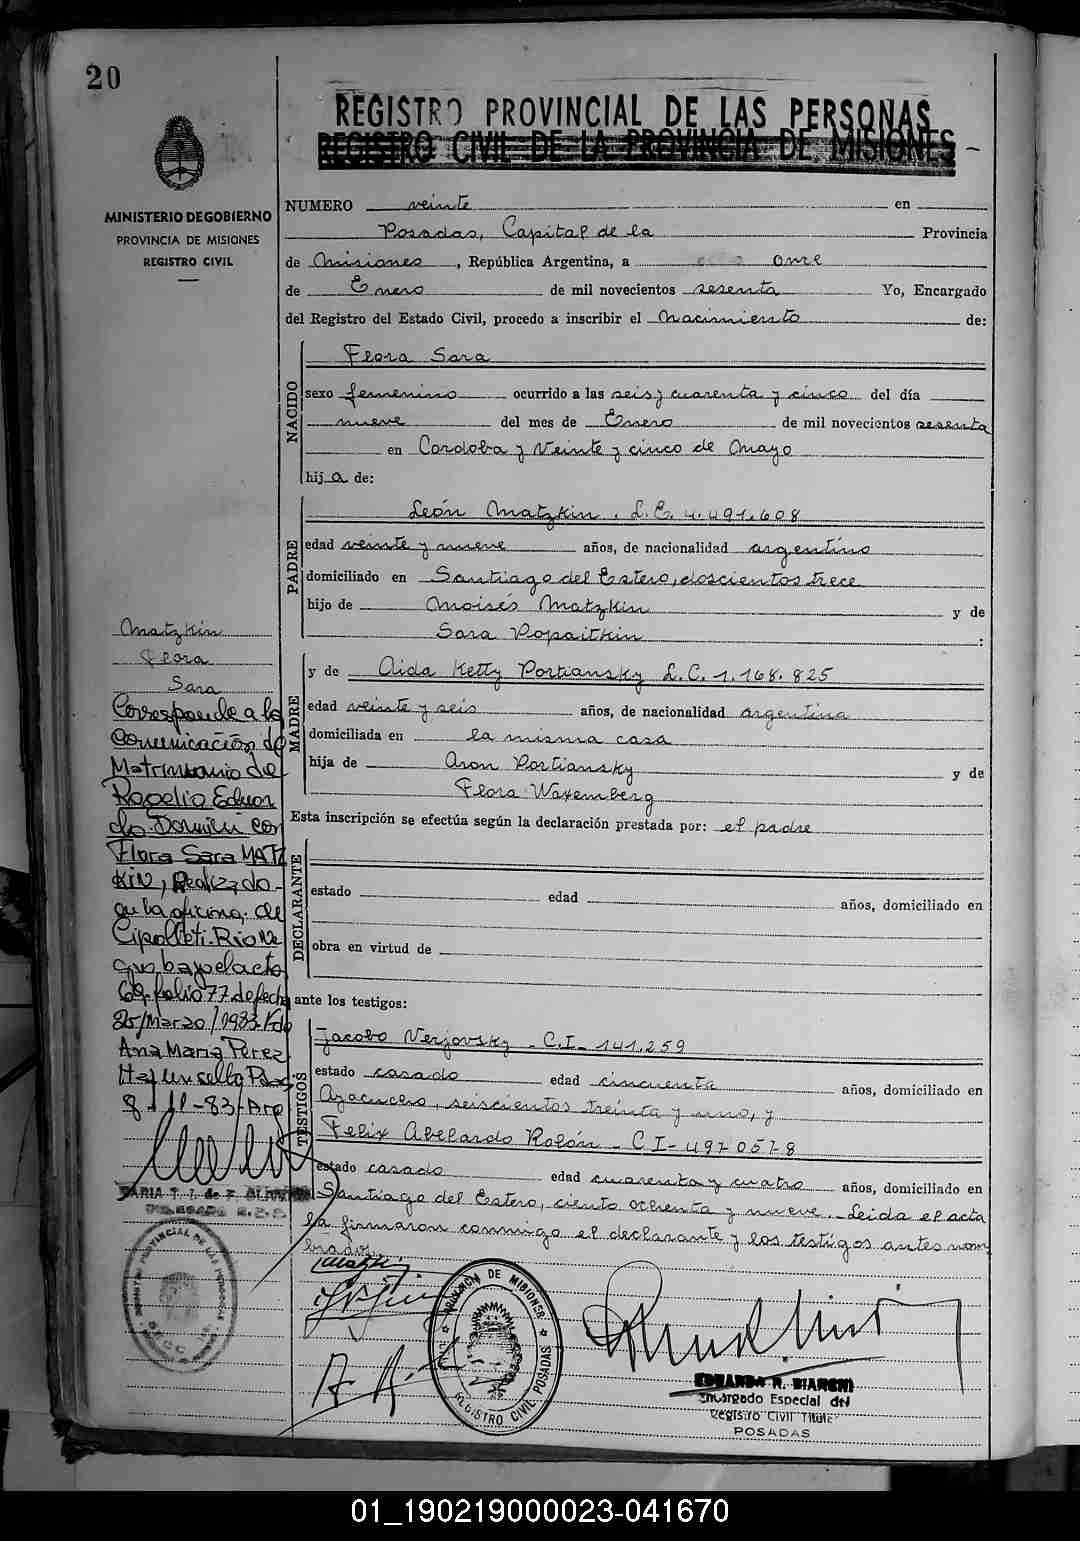 20
REGISTRO PROVINCIAL DE LAS PERSONAS
REGISTRO CIVIL DE LA PROVINCIA DE MISIONES
MINISTERIO DE GOBIERNO
PROVINCIA DE MISIONES
REGISTRO CIVIL
NUMERO veinte en
Posadas, Capital de la Provincia
de Misiones, República Argentina, a once
de Enero de mil novecientos sesenta Yo, Encargado
del Registro del Estado Civil, procedo a inscribir el Nacimiento de:
NACIDO
Flora Sara
sexo femenino ocurrido a las seis y cuarenta y cinco del día
nueve del mes de Enero de mil novecientos sesenta
en Cordoba y Veinte y cinco de Mayo
hija de:
PADRE
León Matzkin. L.E. 4.491.608
edad veinte y nueve años, de nacionalidad argentino
domiciliado en Santiago del Estero, doscientos trece
hijo de Moisés Matzkin y de
Sara Popaitkin :
MADRE
y de Aida Ketty Portiansky L.C. 1.168.825
edad veinte y seis años, de nacionalidad argentina
domiciliada en la misma casa
hija de Aron Portiansky y de
Flora Waxemberg
Esta inscripción se efectúa según la declaración prestada por: el padre
DECLARANTE
estado edad años, domiciliado en
obra en virtud de
ante los testigos:
TESTIGOS
Jacobo Verjovsky - C.I- 141.259
estado casado edad cincuenta años, domiciliado en
Ayacucho, seiscientos treinta y uno, y
Felix Abelardo Rolón - C I-
estado casado edad cuarenta y cuatro años, domiciliado en
Santiago del Estero, ciento ochenta y nueve. Leida el acta
la firmaron conmigo el declarante y los testigos antes nom
brados.
Matzkin
Flora
Sara
Corresponde a la
Comunicación de
Matrimonio de
Rogelio Eduar
do con
Flora Sara MATZ
KIN, Realizado
en la oficina de
Cipolleti. Rio Ne
gro bajo el acto
69 folio 77 de fecha
25/Marzo/1983. Fdo
Ana Maria Perez
Hay un sello
8-11-83-
REGISTRO PROVINCIAL DE LAS PERSONAS
PROVINCIA DE MISIONES
REGISTRO CIVIL POSADAS
EDUARDO R. BIANCHI
Encargado Especial del
Registro Civil Titular
POSADAS
01_190219000023-041670